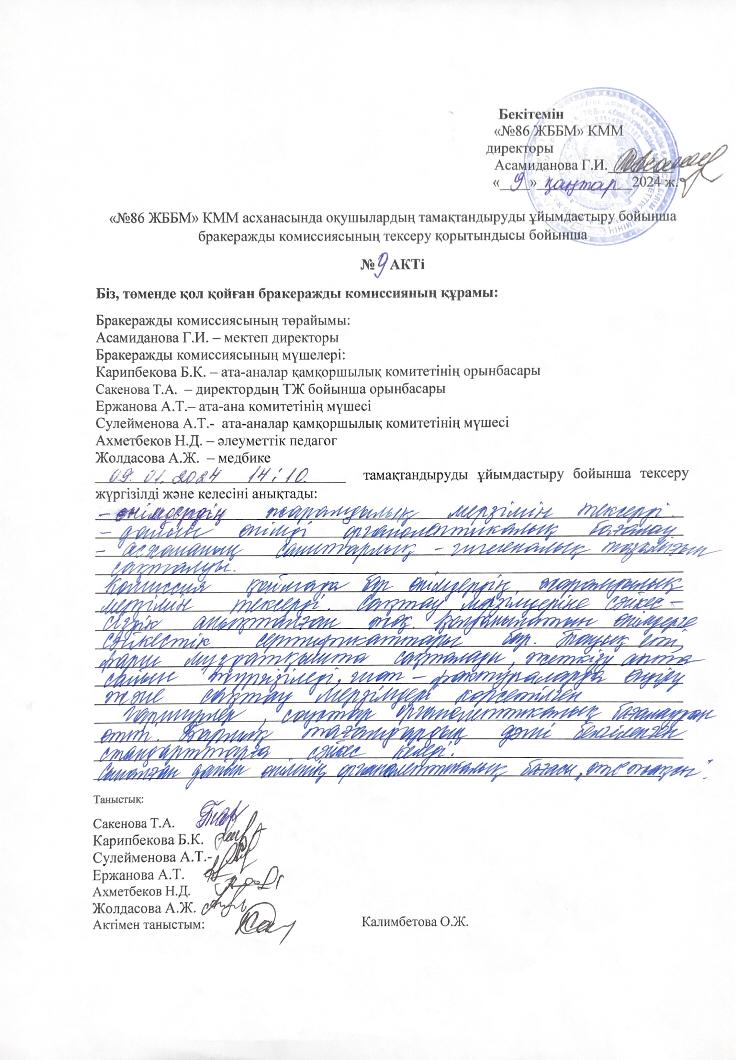 Бекітемін
«№86 ЖББМ» КММ
директоры
Асамиданова Г.И.
« 9 » қаңтар 2024 ж.
«№86 ЖББМ» КММ асханасында оқушылардың тамақтандыруды ұйымдастыру бойынша
бракеражды комиссиясының тексеру қорытындысы бойынша
№ 9 АКТі
Біз, төменде қол қойған бракеражды комиссияның құрамы:
Бракеражды комиссиясының төрайымы:
Асамиданова Г.И. – мектеп директоры
Бракеражды комиссиясының мүшелері:
Карипбекова Б.К. – ата-аналар қамқоршылық комитетінің орынбасары
Сакенова Т.А. – директордың ТЖ бойынша орынбасары
Ержанова А.Т.– ата-ана комитетінің мүшесі
Сулейменова А.Т.- ата-аналар қамқоршылық комитетінің мүшесі
Ахметбеков Н.Д. – әлеуметтік педагог
Жолдасова А.Ж. – медбике
09. 01. 2024 14:10. тамақтандыруды ұйымдастыру бойынша тексеру
жүргізілді және келесіні анықтады:
- өнімдердің жарамдылық мерзімін тексерді.
- дайын өнімді органолептикалық бағалау
- асхананың санитарлық - гигиеналық тазалығын
сақталуы.
Комиссия қоймада бар өнімдердің жарамдылық
мерзімін тексерді. Сақтау мерзімдеріне сәйкес-
сіздік анықталған жоқ. Қолданылатын өнімдерге
сәйкестік сертификаттары бар. Тауық еті,
фарш мұздатқышта сақталады, жеткізу
және сақтау мерзімдері көрсетілген
Гарнирлер, соустар органолептикалық бағалаудан
өтті. Барлық тағамдардың дәмі бекітілген
стандарттарға сәйкес келеді.
дайын өнімнің органолептикалық бағасы
Таныстық:
Сакенова Т.А.
Карипбекова Б.К.
Сулейменова А.Т.-
Ержанова А.Т.
Ахметбеков Н.Д.
Жолдасова А.Ж.
Актімен таныстым: Калимбетова О.Ж.